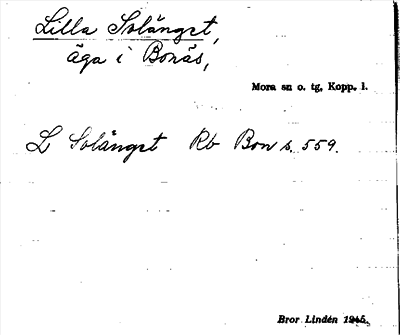 Lilla Solängst,
äga i Bonäs,
Mora sn o. tg, Kopp. l.
L Solängst Rb Bon s. 559.
Bror Lindén 1945.